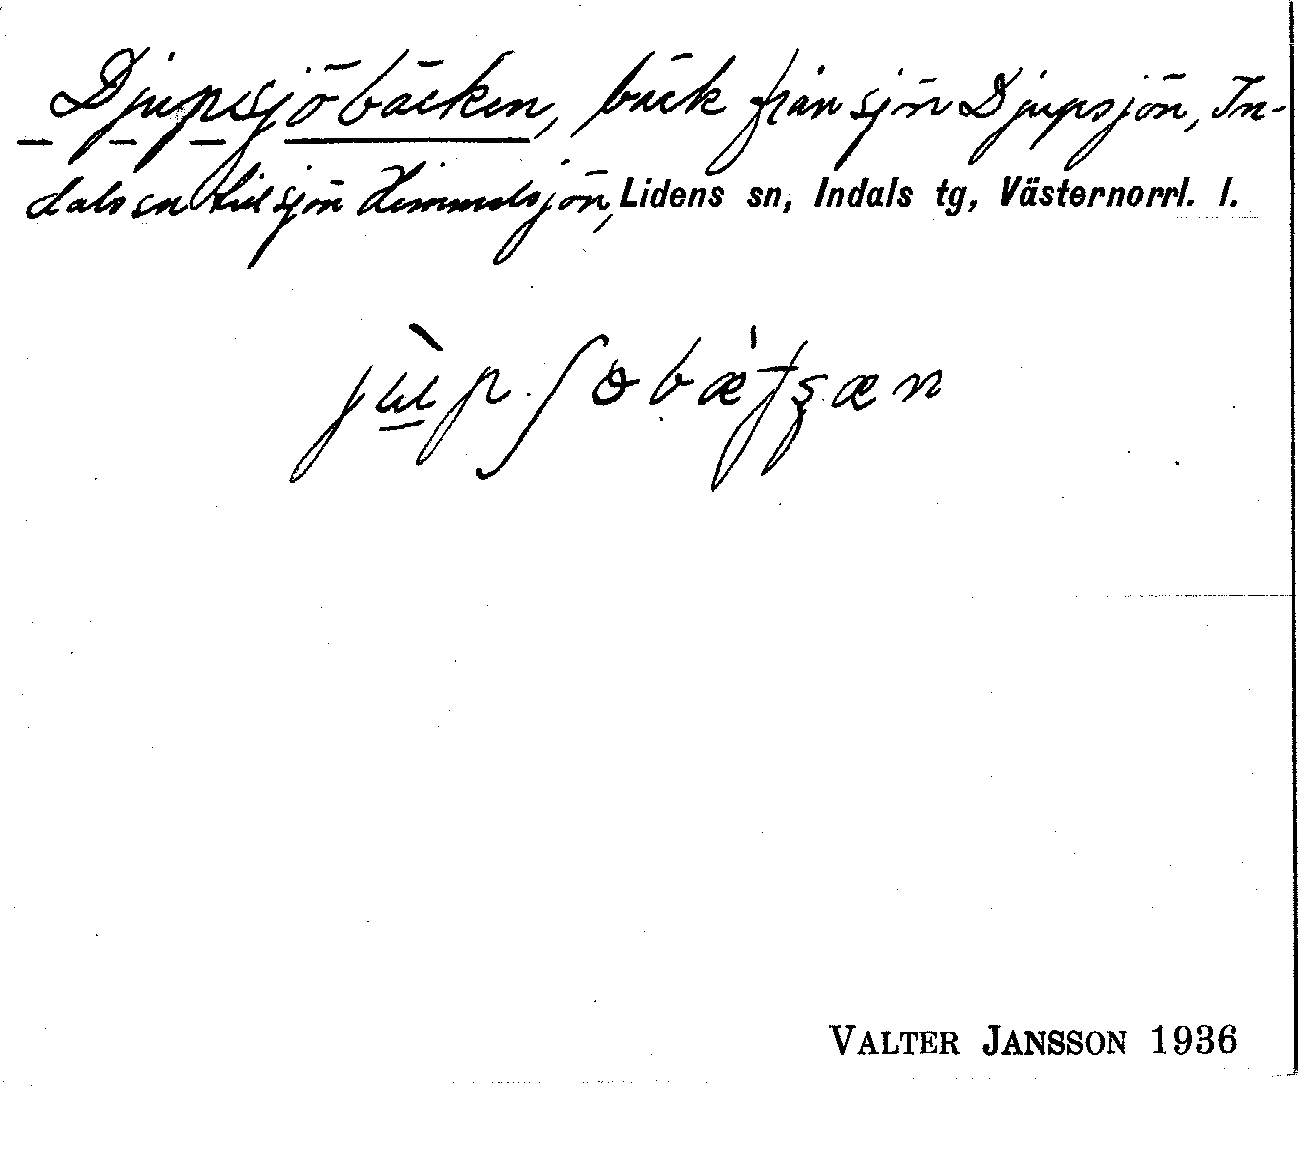 Djupsjöbäcken, bäck från sjön Djupsjön, In-
dals sn till sjön Himmelsjön, Lidens sn, Indals tg, Västernorrl. l.
VALTER JANSSON 1936